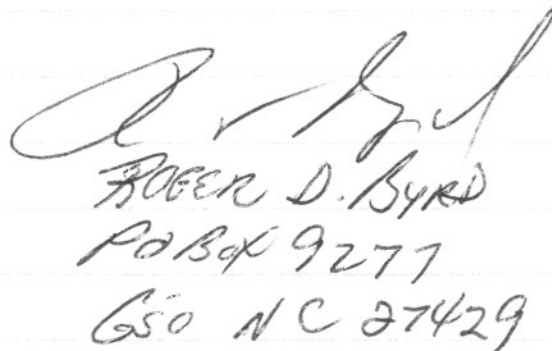 ROGER D. BYRD
PO BOX 9277
GSO NC 27429